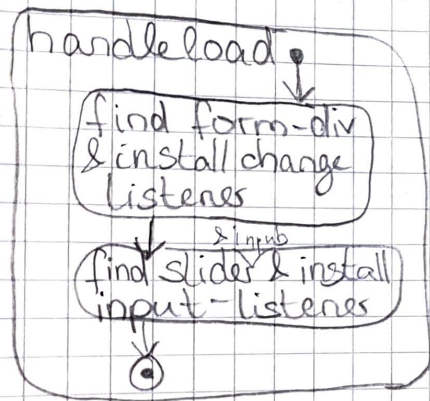 handleload
find form-div
& install change
listener
& input
find slider & install
input-listener